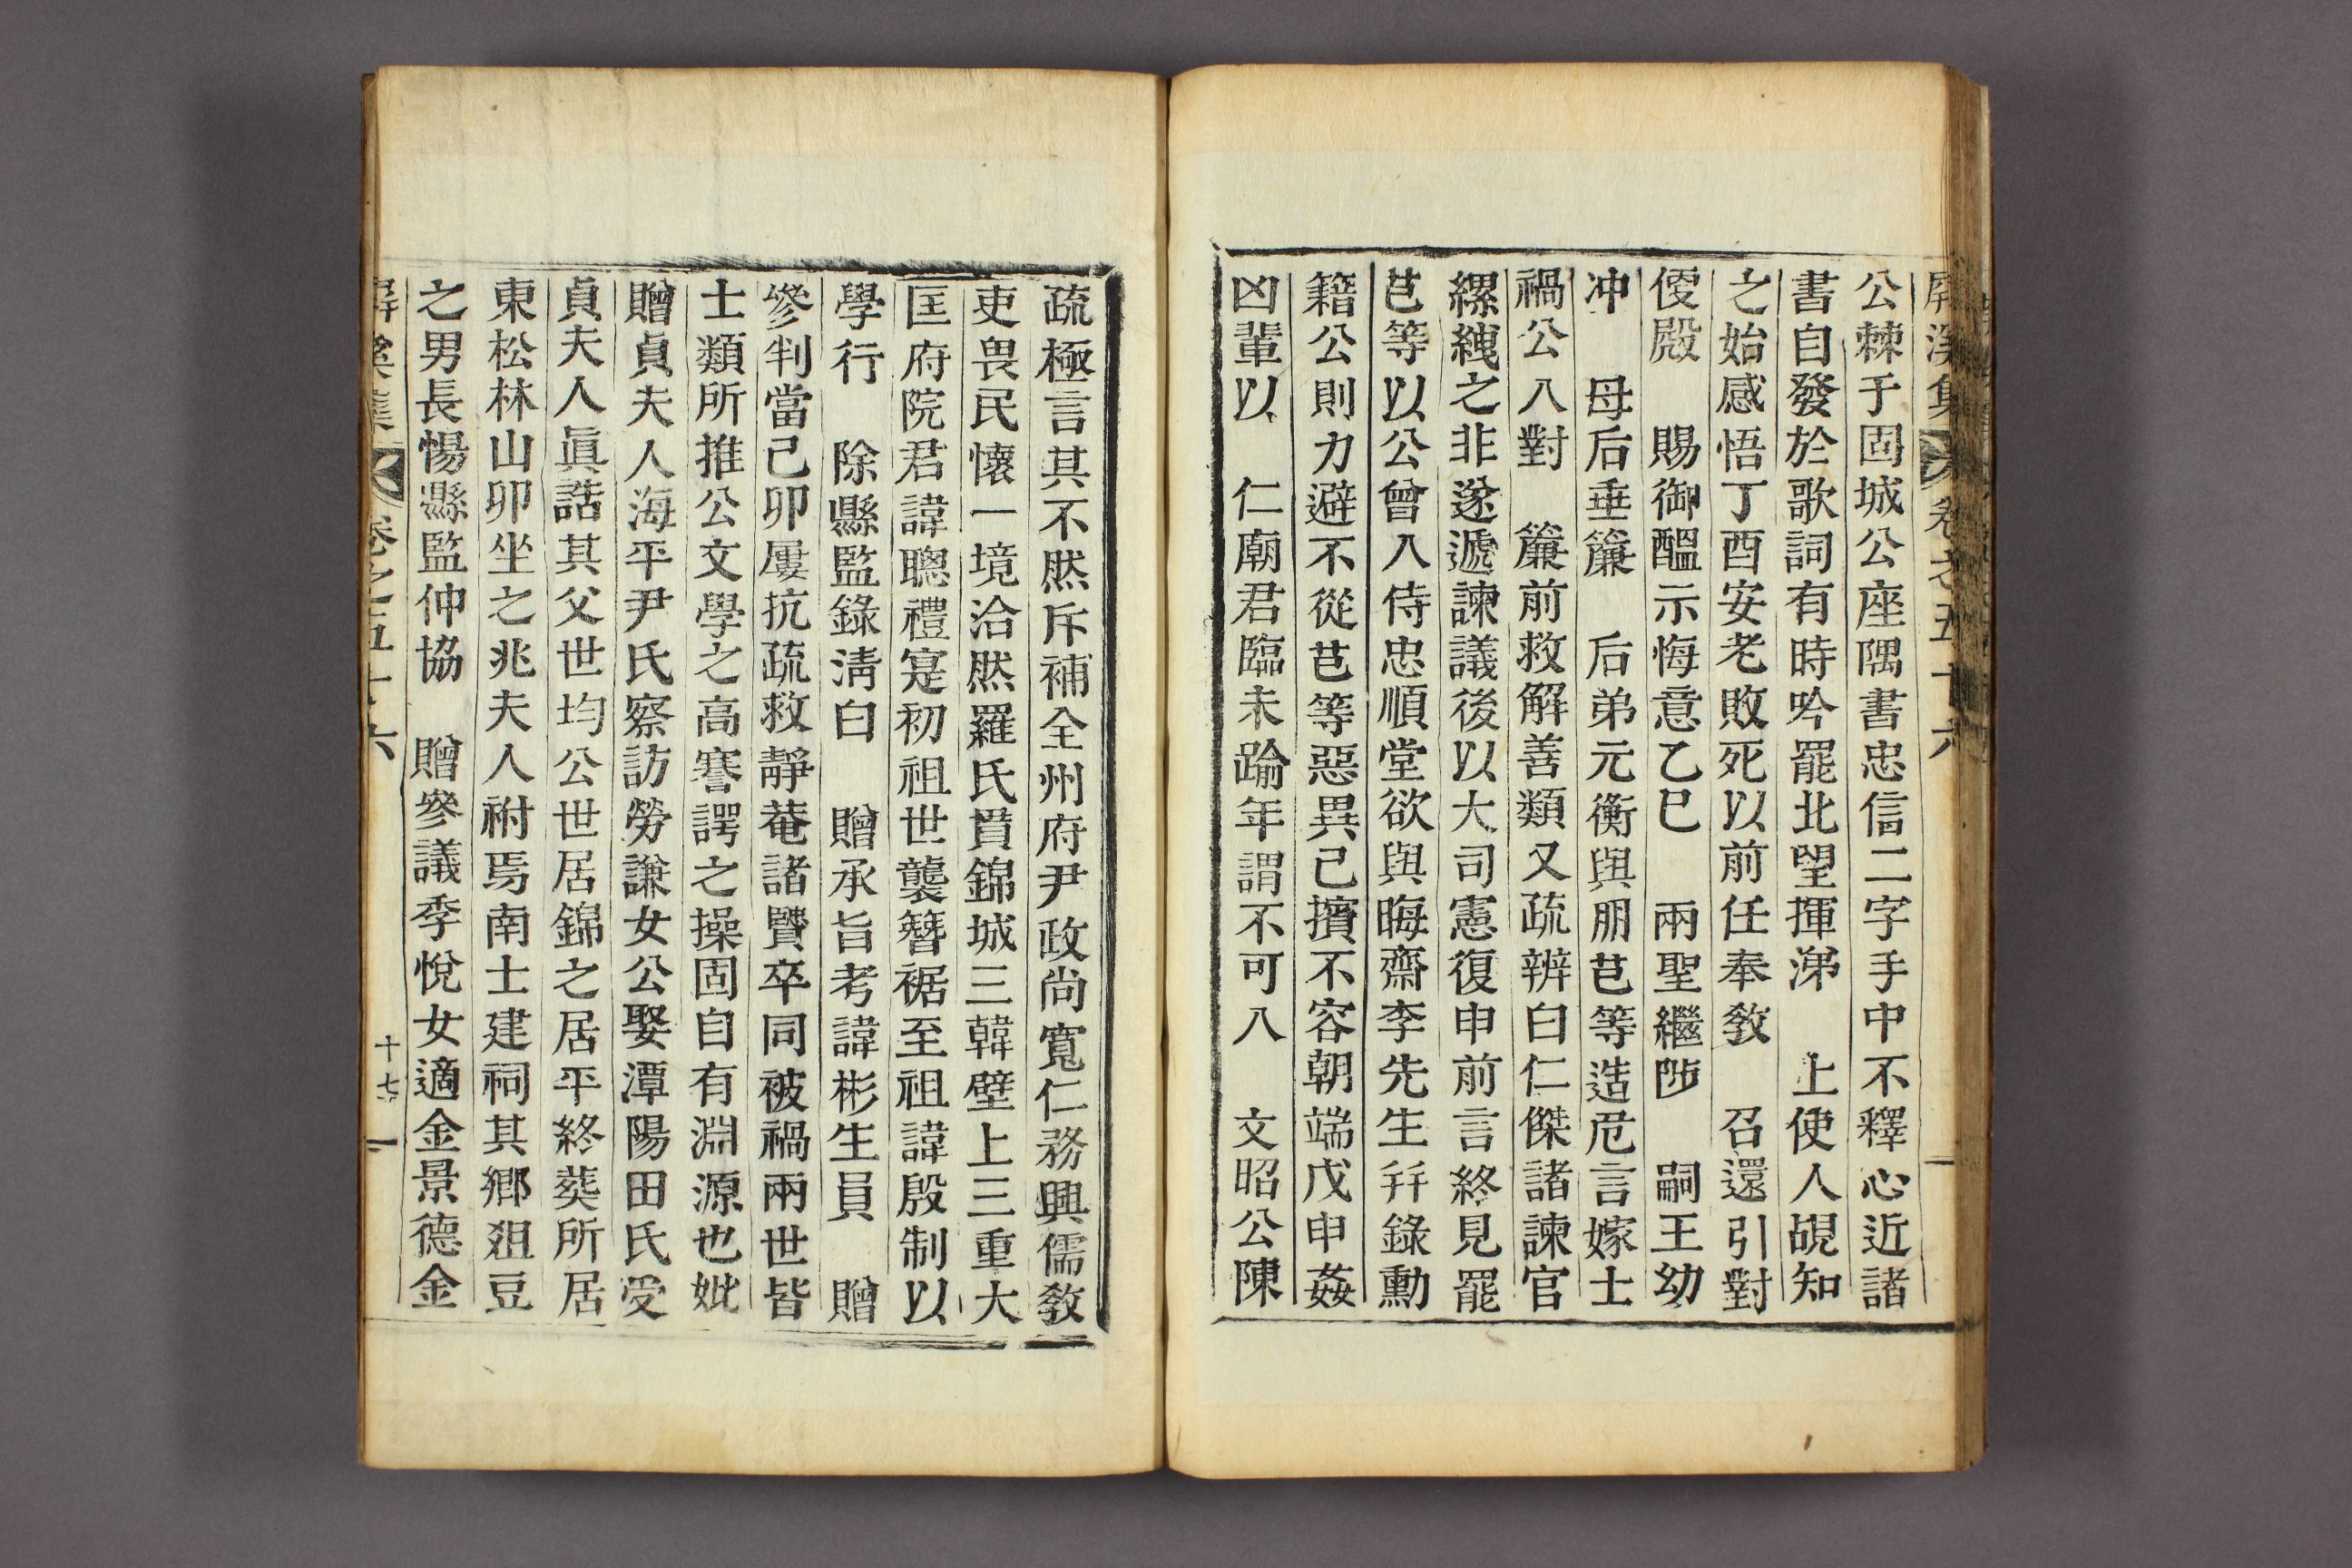 屛溪集 卷之五十六
公棘于固城公座隅書忠信二字手中不釋心近諸
書自發於歌詞有時吟罷北望揮涕 上使人覘知
之始感悟丁酉安老敗死以前任奉敎 召還引對
便殿 賜御醞示悔意乙巳 兩聖繼陟 嗣王幼
冲 母后垂簾 后弟元衡與朋芑等造危言嫁士
禍公入對 簾前救解善類又疏辨白仁傑諸諫官
縲絏之非遂遞諫議後以大司憲復申前言終見罷
芑等以公曾入侍忠順堂欲與晦齋李先生幷錄勳
籍公則力避不從芑等惡異己擯不容朝端戊申姦
凶輩以 仁廟君臨未踰年謂不可入 文昭公陳
疏極言其不然斥補全州府尹政尙寬仁務興儒敎
吏畏民懷一境洽然羅氏貫錦城三韓壁上三重大
匡府院君諱聰禮寔初祖世襲簪裾至祖諱殷制以
學行 除縣監錄淸白 贈承旨考諱彬生員 贈
參判當己卯屢抗疏救靜菴諸賢卒同被禍兩世皆
士類所推公文學之高謇諤之操固自有淵源也妣
贈貞夫人海平尹氏察訪勞謙女公娶潭陽田氏受
貞夫人眞誥其父世均公世居錦之居平終葬所居
東松林山卯坐之兆夫人祔焉南士建祠其鄕俎豆
之男長惕縣監仲協 贈參議季悅女適金景德金
屛溪集 卷之五十六 十七